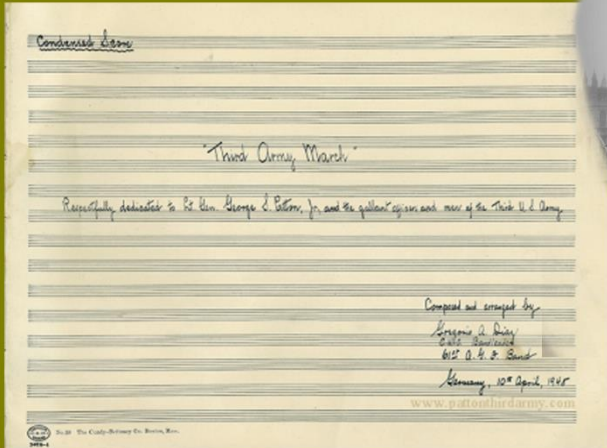 Condensed Score
"Third Army March"
Respectfully dedicated to Lt. Gen. George S. Patton, Jr. and the gallant officers and men of the Third U. S. Army
Composed and arranged by
Gregorio A. Diaz
61st A. G. F. Band
Germany, 10th April, 1945
www.pattonthirdarmy.com
No. 20 The Cundy-Bettoney Co. Boston, Mass.